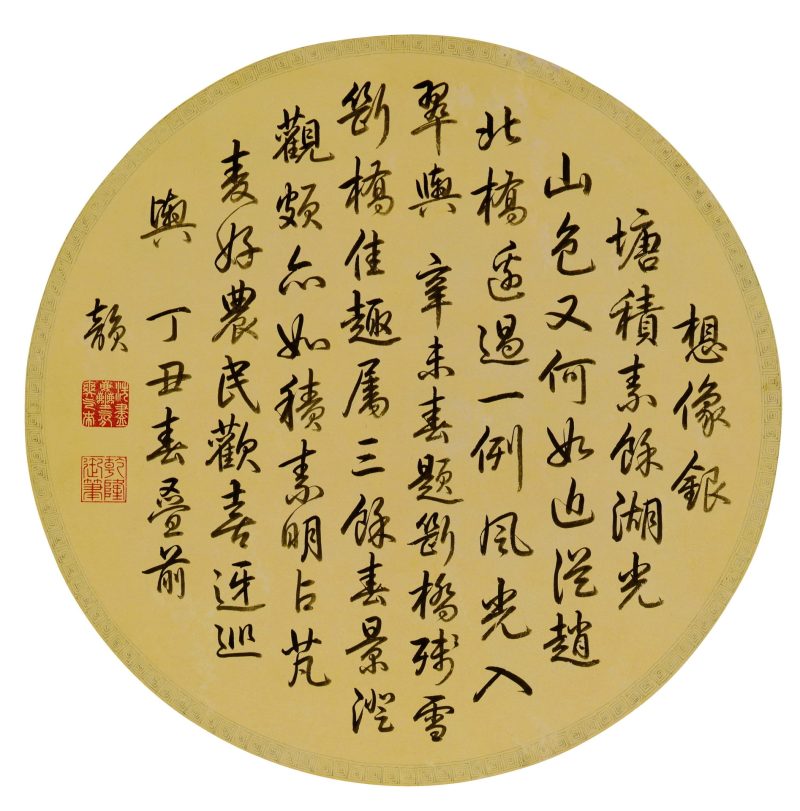 想像銀
塘積素餘湖光
山色又何如近從趙
北橋邊過一例風光入
翠輿 辛未春題斷橋殘雪
斷橋佳趣屬三餘春景澄
觀頗亦如積素明占芃
麥好農民歡喜迓巡
輿 丁丑春疊前
韻
乾隆御筆